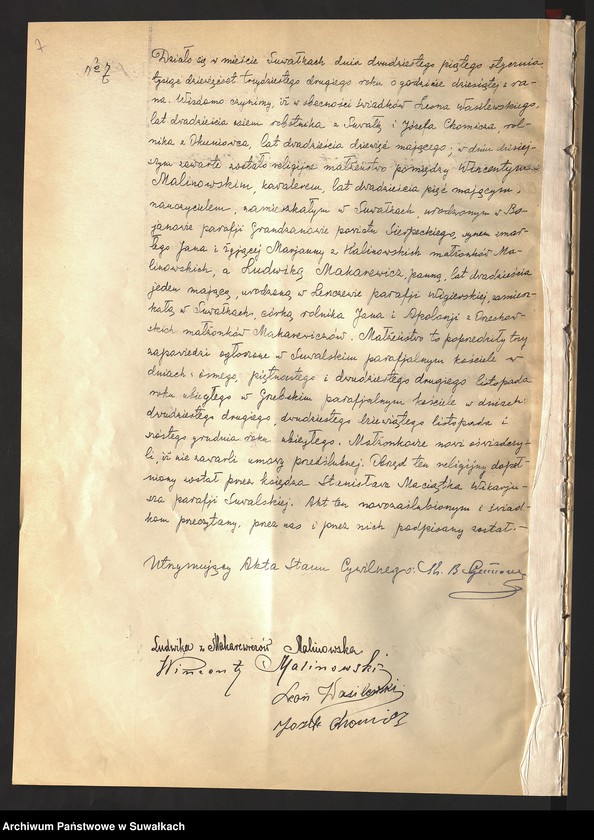 7
Nº 7
Działo się w mieście Suwałkach dnia dwudziestego piątego stycznia
tysiąc dziewięćset trzydziestego drugiego roku o godzinie dziesiątej z ra-
na. Wiadomo czynimy, iż w obecności świadków Leona Wasilewskiego,
lat dwadzieścia osiem robotnika z Suwałk i Józefa Chomicza, rol-
nika z Okuniowca, lat dwadzieścia dziewięć mającego; w dniu dzisiej-
szym zawarte zostało religijne małżeństwo pomiędzy Wincentym
Malinowskim, kawalerem, lat dwadzieścia pięć mającym,
nauczycielem, zamieszkałym w Suwałkach, urodzonym w Bo-
janowie parafji powiatu Sierpeckiego, synem zmar-
łego Jana i żyjącej Marjanny z Kalinowskich małżonków Ma-
linowskich, a Ludwiką Makarewicz, panną, lat dwadzieścia
jeden mającą, urodzoną w Leszczewie parafji Wigierskiej, zamiesz-
kałą w Suwałkach, córką rolnika Jana i Apolonji z Orzechow-
skich małżonków Makarewiczów. Małżeństwo to poprzedziły trzy
zapowiedzi ogłoszone w Suwalskim parafjalnym kościele w
dniach: ósmego, piętnastego i dwudziestego drugiego listopada
roku ubiegłego w parafjalnym kościele w dniach:
dwudziestego drugiego, dwudziestego dziewiątego listopada i
szóstego grudnia roku ubiegłego. Małżonkowie nowi oświadczy-
li, iż nie zawarli umowy przedślubnej. Obrzęd ten religijny dopeł-
niony został przez księdza Stanisława Maciątka Wikarju-
sza parafji Suwalskiej. Akt ten nowozaślubionym i świad-
kom przeczytany, przez nas i przez nich podpisany został.-
Utrzymujący Akta Stanu Cywilnego: B.
Ludwika z Makarewiczów Malinowska
Wincenty Malinowski
Leon Wasilewski
Józef Chomicz
Archiwum Państwowe w Suwałkach